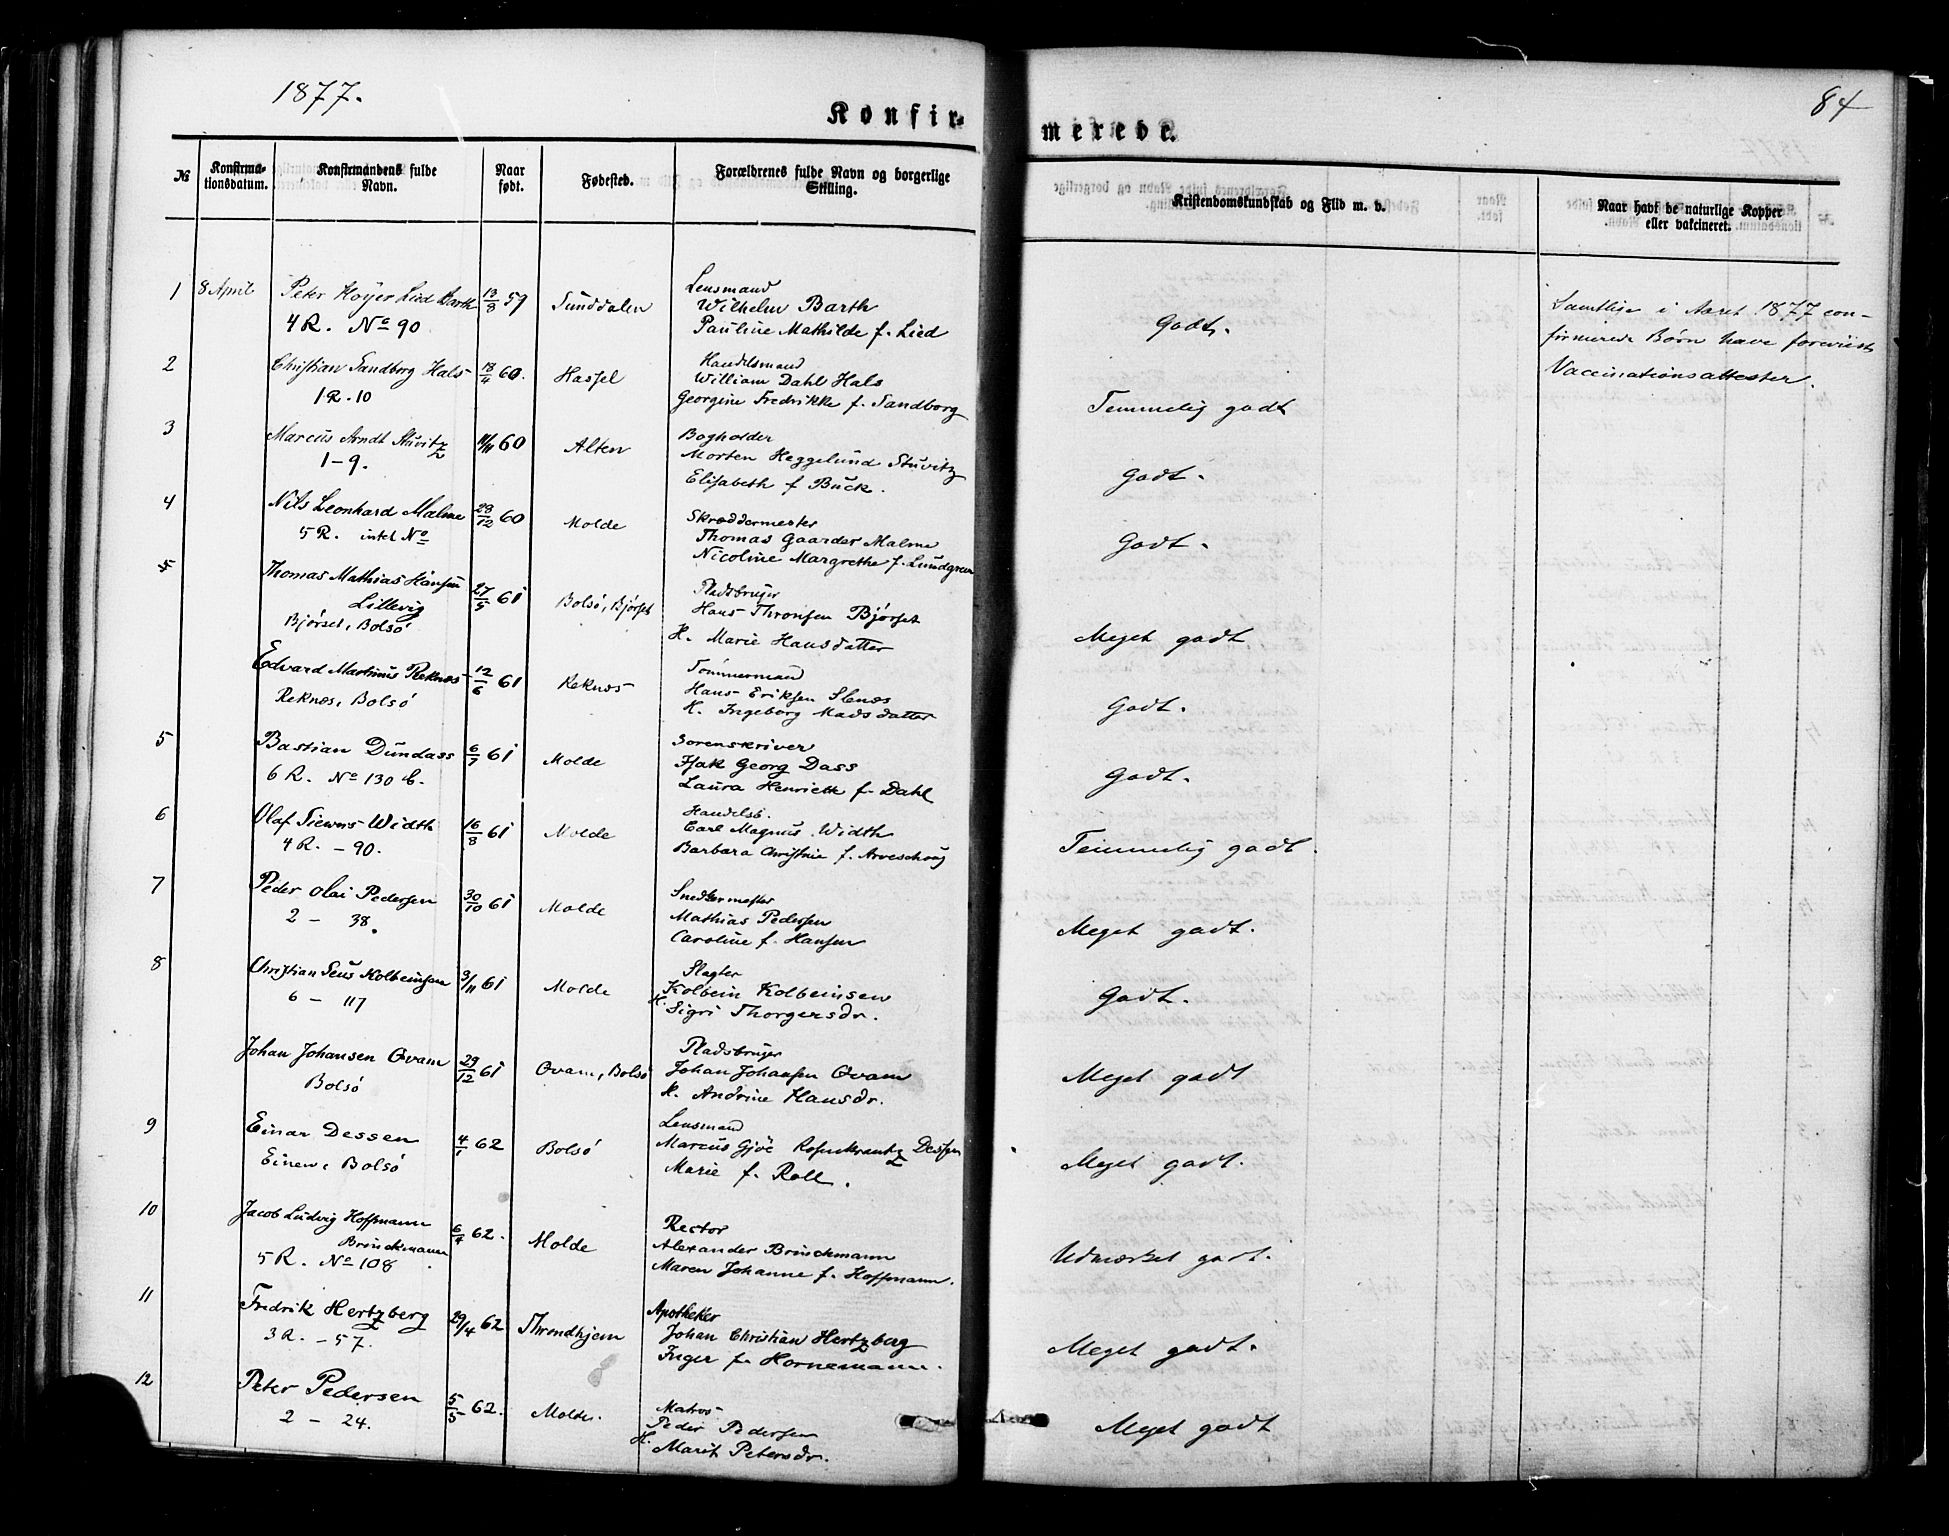 1877.
84
Konfir-
merede.
№
Konfirma-
tionsdatum.
Konfirmandens fulde
Navn.
Naar
født.
Fødested.
Forældrenes fulde Navn og borgerlige
Stilling.
Kristendomskundskab og Flid m. v.
Naar havt de naturlige Kopper
eller vakcineret.
1 8 April Peter Høyer Lied Barth 13/8 59 Sunddalen Lensmand
4 R. No 90 Wilhelm Barth
Pauline Mathilde f. Lied
Godt.
Samtlige i Aaret 1877 con-
firmerede Børn have foreviist
Vaccinationsattester.
2 Christian Sandborg Hals 13/4 60. Hassel Handelsmand
1 R. 10 William Dahl Hals
Georgine Fredrikke f. Sandborg
Temmelig godt
3 Marcus Arndt Stuvitz 11/11 60 Alten Bogholder
1 - 9. Morten Heggelund Stuvitz
Elisabeth f Buck.
Godt.
4 Nils Leonhard Malme 28/12 60 Molde Skræddermester
5 R. intet No Thomas Gaarder Malme
Nicoline Margrethe f. Lundgreen
Godt.
5 Thomas Mathias Hansen 27/5 61 Bolsø, Bjørset Pladsbruger
Lillevig Hans Thronsen Bjørset
Bjørset, Bolsø H. Marie Hansdatter
Meget godt
Edvard Martinus Reknæs 12/6 61 Reknæs Tømmermand
Reknæs, Bolsø Hans Eriksen Slenæs
H. Ingeborg Madsdatter
Godt.
5 Bastian Dundass 6/7 61 Molde Sorenskriver
6 R. No 130 b. Isak Georg Dass
Laura Henriette f. Dahl
Godt.
6 Olaf Siewers Width 16/8 61 Molde Handelsb.
4 R. - 90. Carl Magnus Width
Barbara Christine f. Arveschoug
Temmelig godt.
7 Peder Olai Pedersen 30/10 61 Molde Snedkermester
2 - 38. Mathias Pedersen
Caroline f. Hansen
Meget godt.
8 Christian Seus Kolbeinsen 3/11 61 Molde Slagter
6 - 117 Kolbein Kolbeinsen
H. Sigri Thorgersdr.
Godt.
Johan Johansen Øvam 29/12 61 Øvam, Bolsø Pladsbruger
Bolsø Johan Johansen Øvam
H. Andrine Hansdr.
Meget godt
9 Einar Dessen 4/1 62 Bolsø Lensmand
Einen, Bolsø Marcus Gjøe Rosenkrantz Dessen
Marie f. Roll.
Meget godt.
10 Jacob Ludvig Hoffmann 6/4 62. Molde Rector
Brinckmann Alexander Brinckmann
5 R. No 108 Maren Johanne f. Hoffmann.
Udmærket godt.
11 Fredrik Hertzberg 29/4 62 Throndhjem Apotheker
3 R. - 57. Johan Christian Hertzberg
Inger f. Hornemann.
Meget godt.
12 Peter Pedersen 5/5 62. Molde. Matros
2 - 24. Peder Pedersen
H. Marit Petersdr.
Meget godt